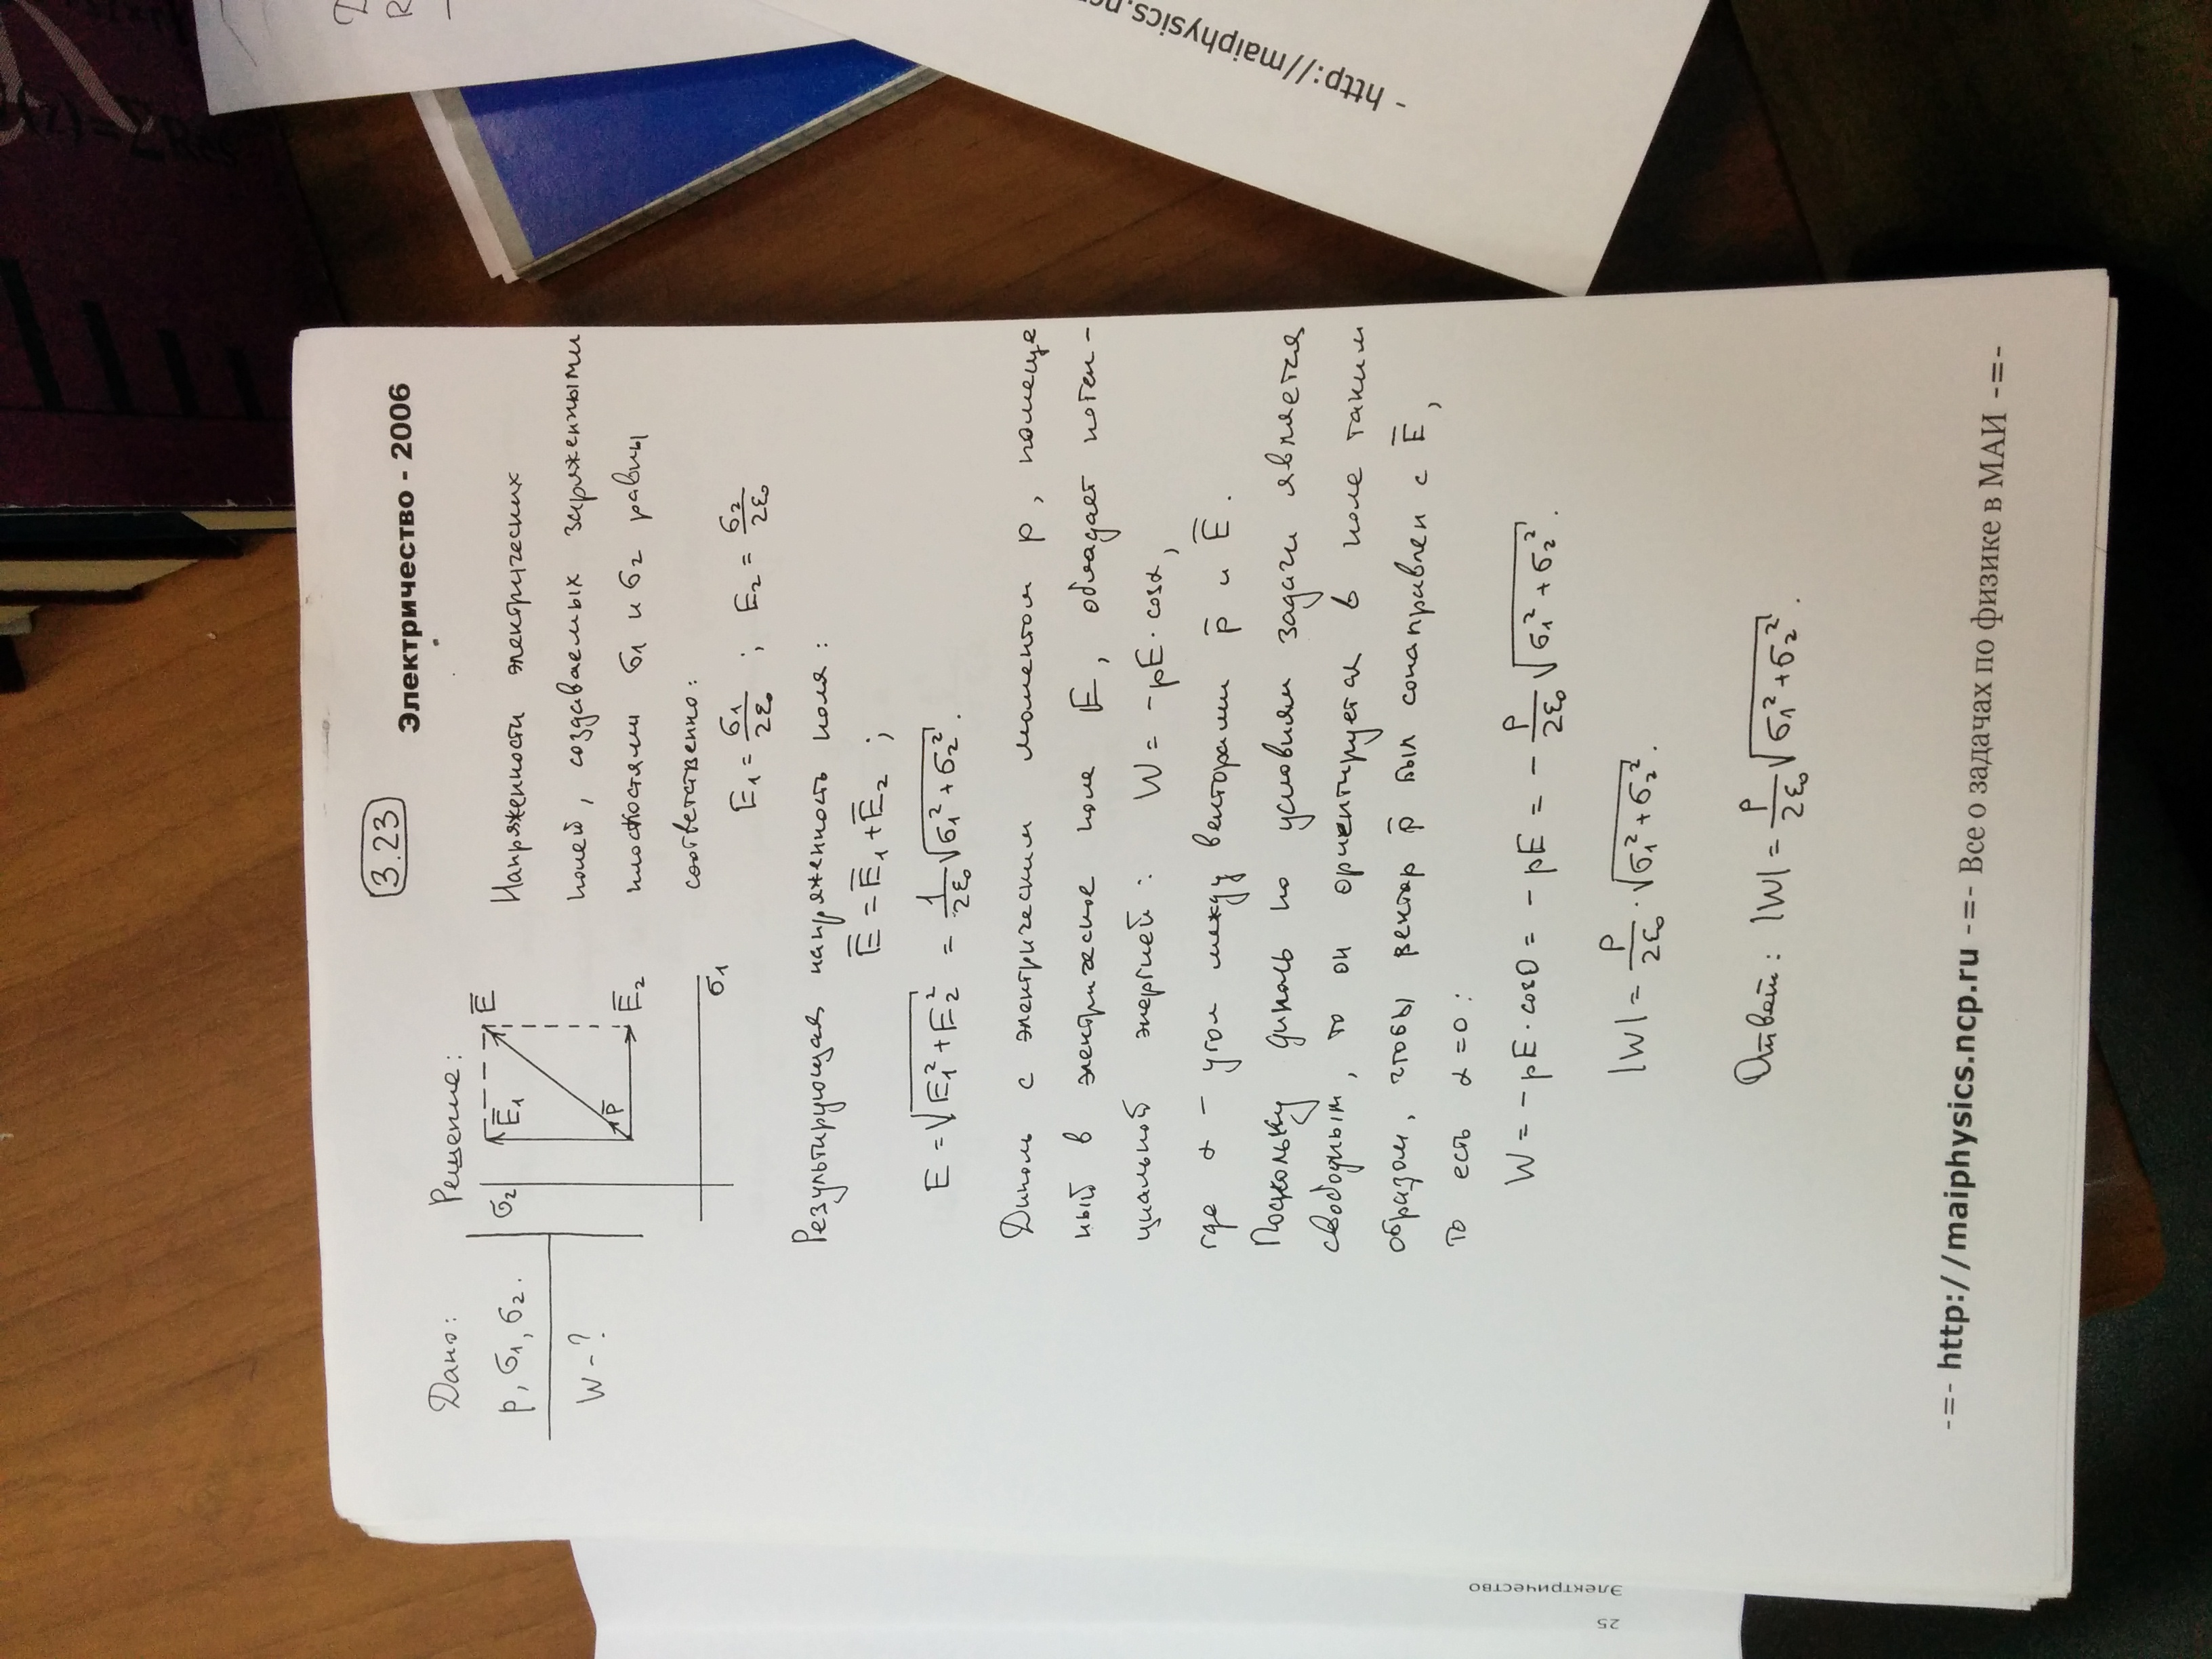 3.23
Электричество - 2006
Дано:
p, σ₁, σ₂.
W - ?
Решение:
σ₂
E̅₁
E̅
p̅
E̅₂
σ₁
Напряженности электрических
полей, создаваемых заряженными
плоскостями σ₁ и σ₂ равны
соответственно:
E₁ = σ₁/2ε₀ ; E₂ = σ₂/2ε₀
Результирующая напряженность поля:
E̅ = E̅₁ + E̅₂ ;
E = √(E₁² + E₂²) = 1/2ε₀ √(σ₁² + σ₂²).
Диполь с электрическим моментом p, помеще
ный в электрическое поле E, обладает потен-
циальной энергией: W = -pE·cosα,
где α - угол между векторами p̅ и E̅.
Поскольку диполь по условиям задачи является
свободным, то он ориентируется в поле таким
образом, чтобы вектор p̅ был сонаправлен с E̅,
то есть α = 0:
W = -pE·cos0 = -pE = - p/2ε₀ √(σ₁² + σ₂²).
|W| = p/2ε₀ · √(σ₁² + σ₂²).
Ответ: |W| = p/2ε₀ √(σ₁² + σ₂²).
-=- http://maiphysics.ncp.ru -=- Все о задачах по физике в МАИ -=-
- http://maiphysics.nc
25
Электричество